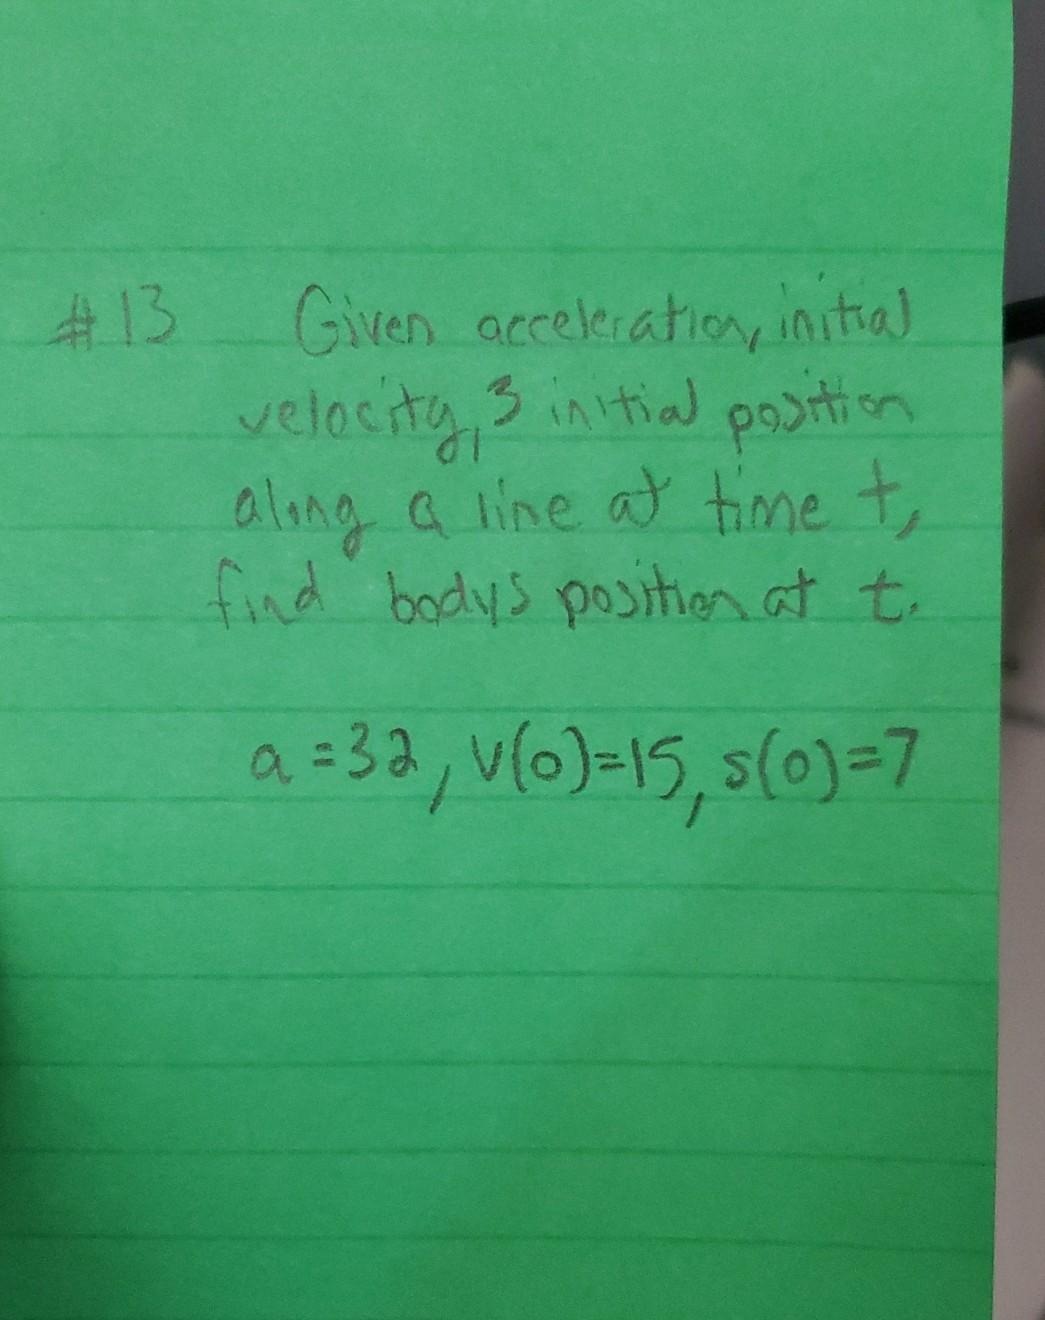 #13 Given acceleration, initial
velocity, 3 initial position
along a line at time t,
find bodys position at t.
a = 32, v(0)=15, s(0)=7